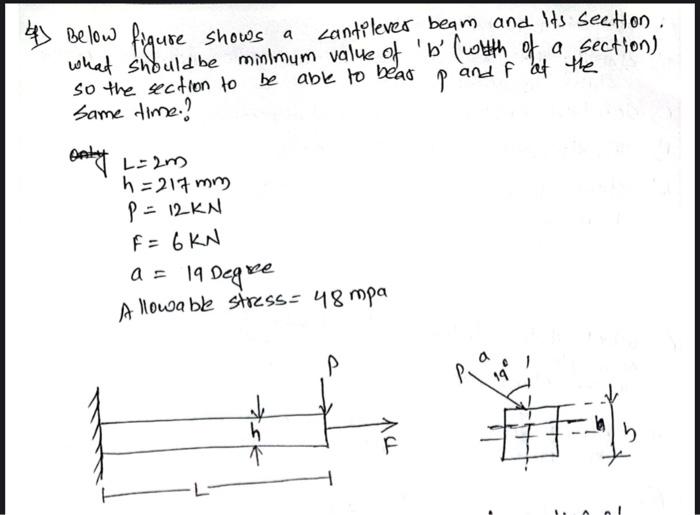 4) Below figure shows a cantilever beam and its section.
what should be minimum value of 'b' (width of a section)
so the section to be able to bear P and F at the
same time.?
L = 2m
h = 217 mm
P = 12KN
F = 6 KN
a = 19 Degree
Allowable stress = 48 mpa
P
a
P
19°
h
h
b
F
L